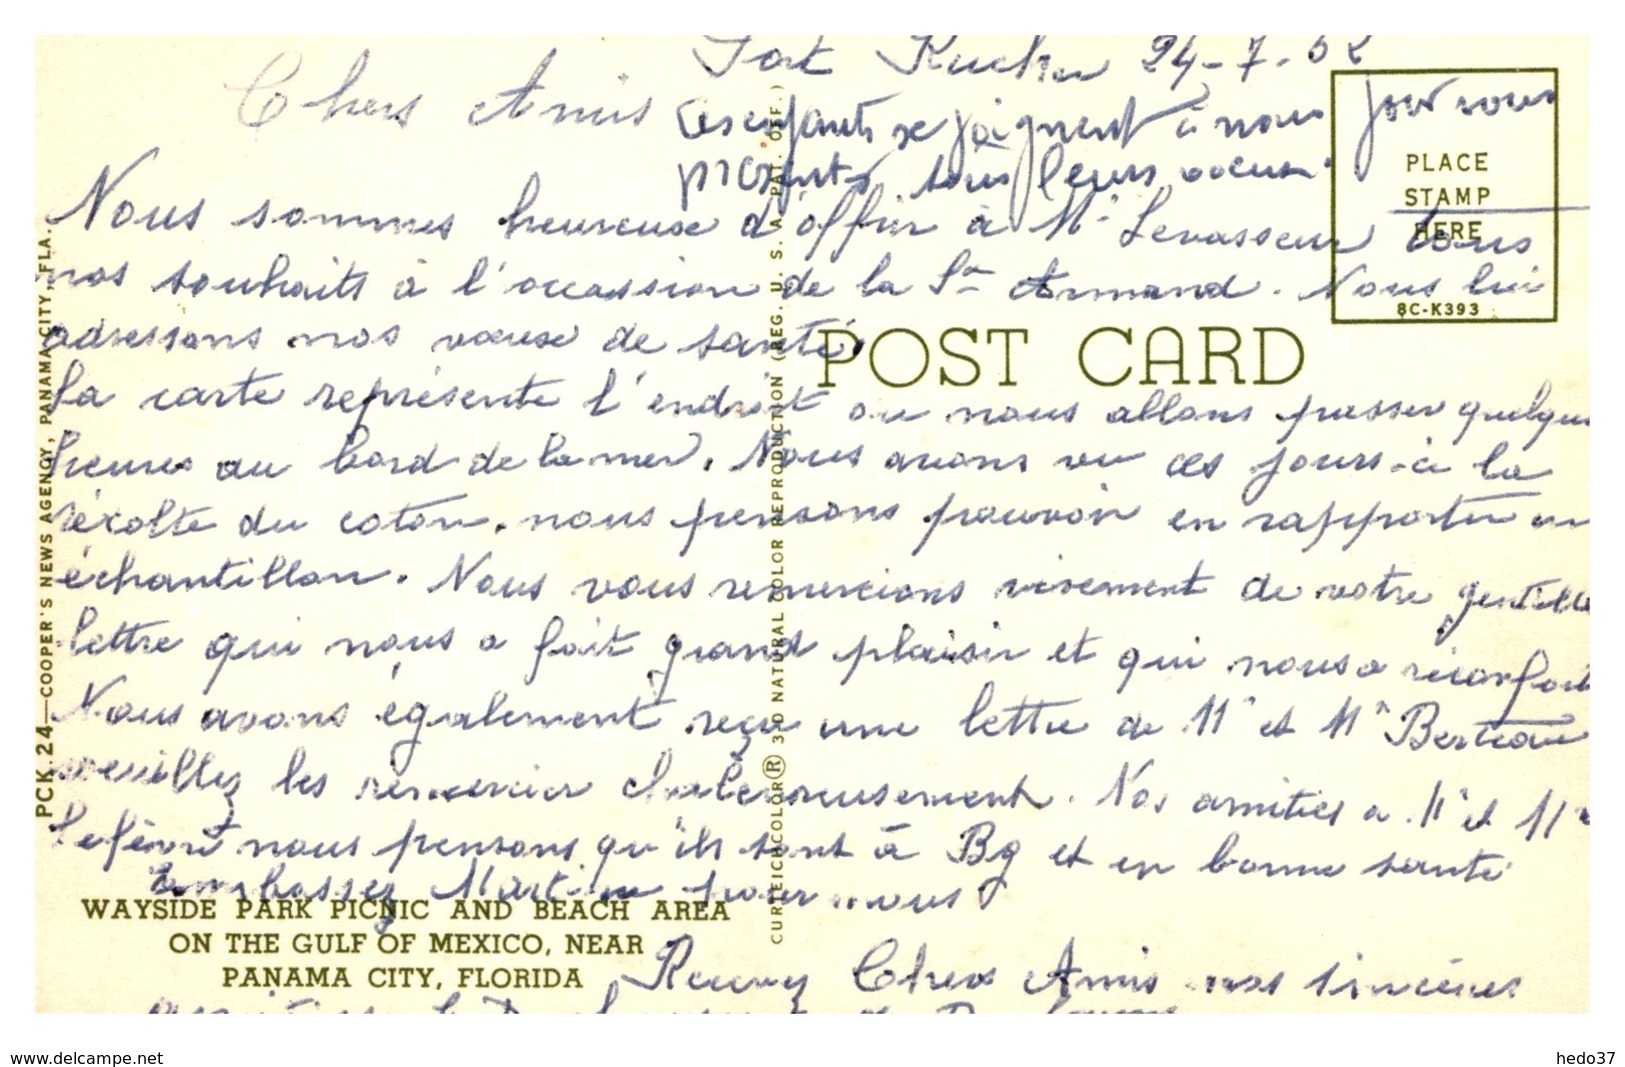 Fort Rucker 24-7-62
Chers Amis
Les enfants se joignent à nous pour vous
présenter tous leurs voeux.
Nous sommes heureuse d'offrir à Mr Levasseur tous
nos souhaits à l'occassion de la St Armand. Nous lui
adressons nos voeux de santé.
La carte représente l'endroit ou nous allons passer quelques
heures au bord de la mer. Nous avons vu ces jours-ci la
récolte du coton. nous pensons pouvoir en rapporter un
échantillon. Nous vous remercions vivement de votre gentille
lettre qui nous a fait grand plaisir et qui nous a réconfort
Nous avons également reçu une lettre de M et Me Berteau
veuillez les remercier chaleureusement. Nos amitiés a M et Me
Lefèvre nous pensons qu'ils sont à Bg et en bonne santé
Embrassez Martine pour nous
Recevez Chers Amis nos sincères
PLACE
STAMP
HERE
8C-K393
POST CARD
PCK.24—COOPER'S NEWS AGENCY, PANAMA CITY, FLA.
CURTEICHCOLOR® 3-D NATURAL COLOR REPRODUCTION (REG. U. S. A. PAT. OFF.)
WAYSIDE PARK PICNIC AND BEACH AREA
ON THE GULF OF MEXICO, NEAR
PANAMA CITY, FLORIDA
www.delcampe.net
hedo37